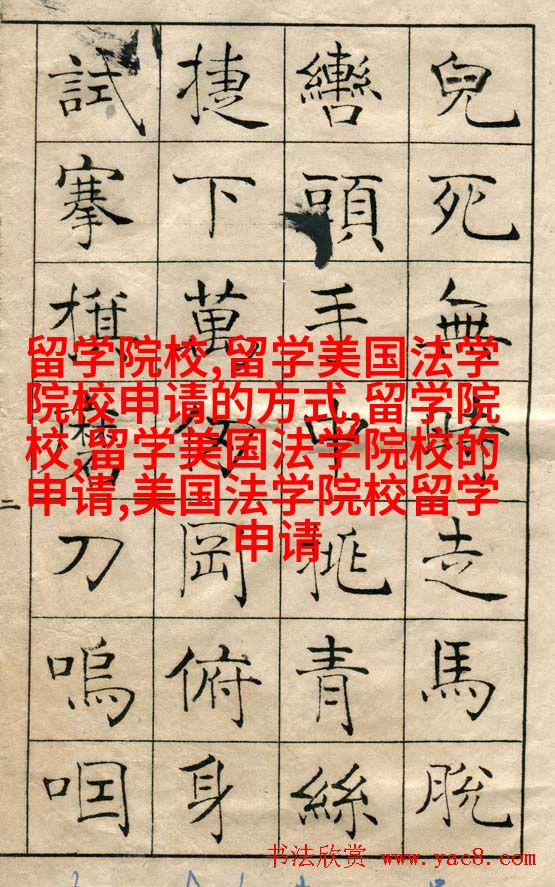 兒死無時走馬脫
轡頭手中挑青絲
捷下萬仞岡俯身
試搴旗磨刀嗚咽
留学院校,留学美国法学
院校申请的方式,留学院
校,留学美国法学院校的
申请,美国法学院校留学
申请
书法欣赏 www.yac8.com
二